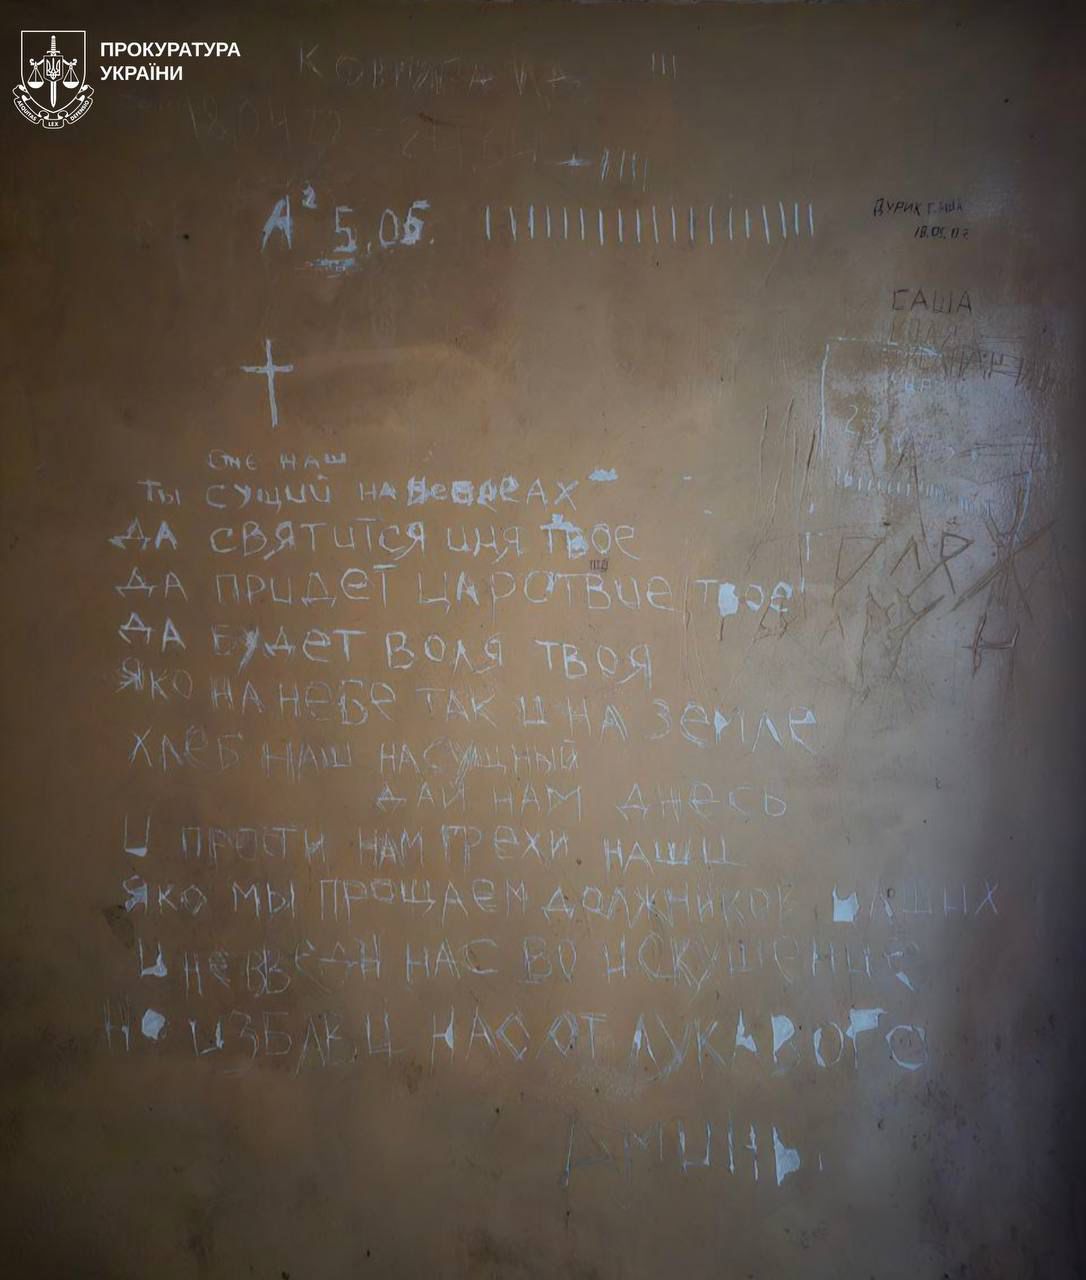 ПРОКУРАТУРА
УКРАЇНИ
А² 5.05.
ДУРИК
18.05.
САША
Отче наш
ты сущий на небесах
да святится имя твое
да придет царствие твое
да будет воля твоя
яко на небе так и на земле
хлеб наш насущный
дай нам днесь
и прости нам грехи наши
яко мы прощаем должником нашых
и не введи нас во искушение
но избави нас от лукавого
Аминь.